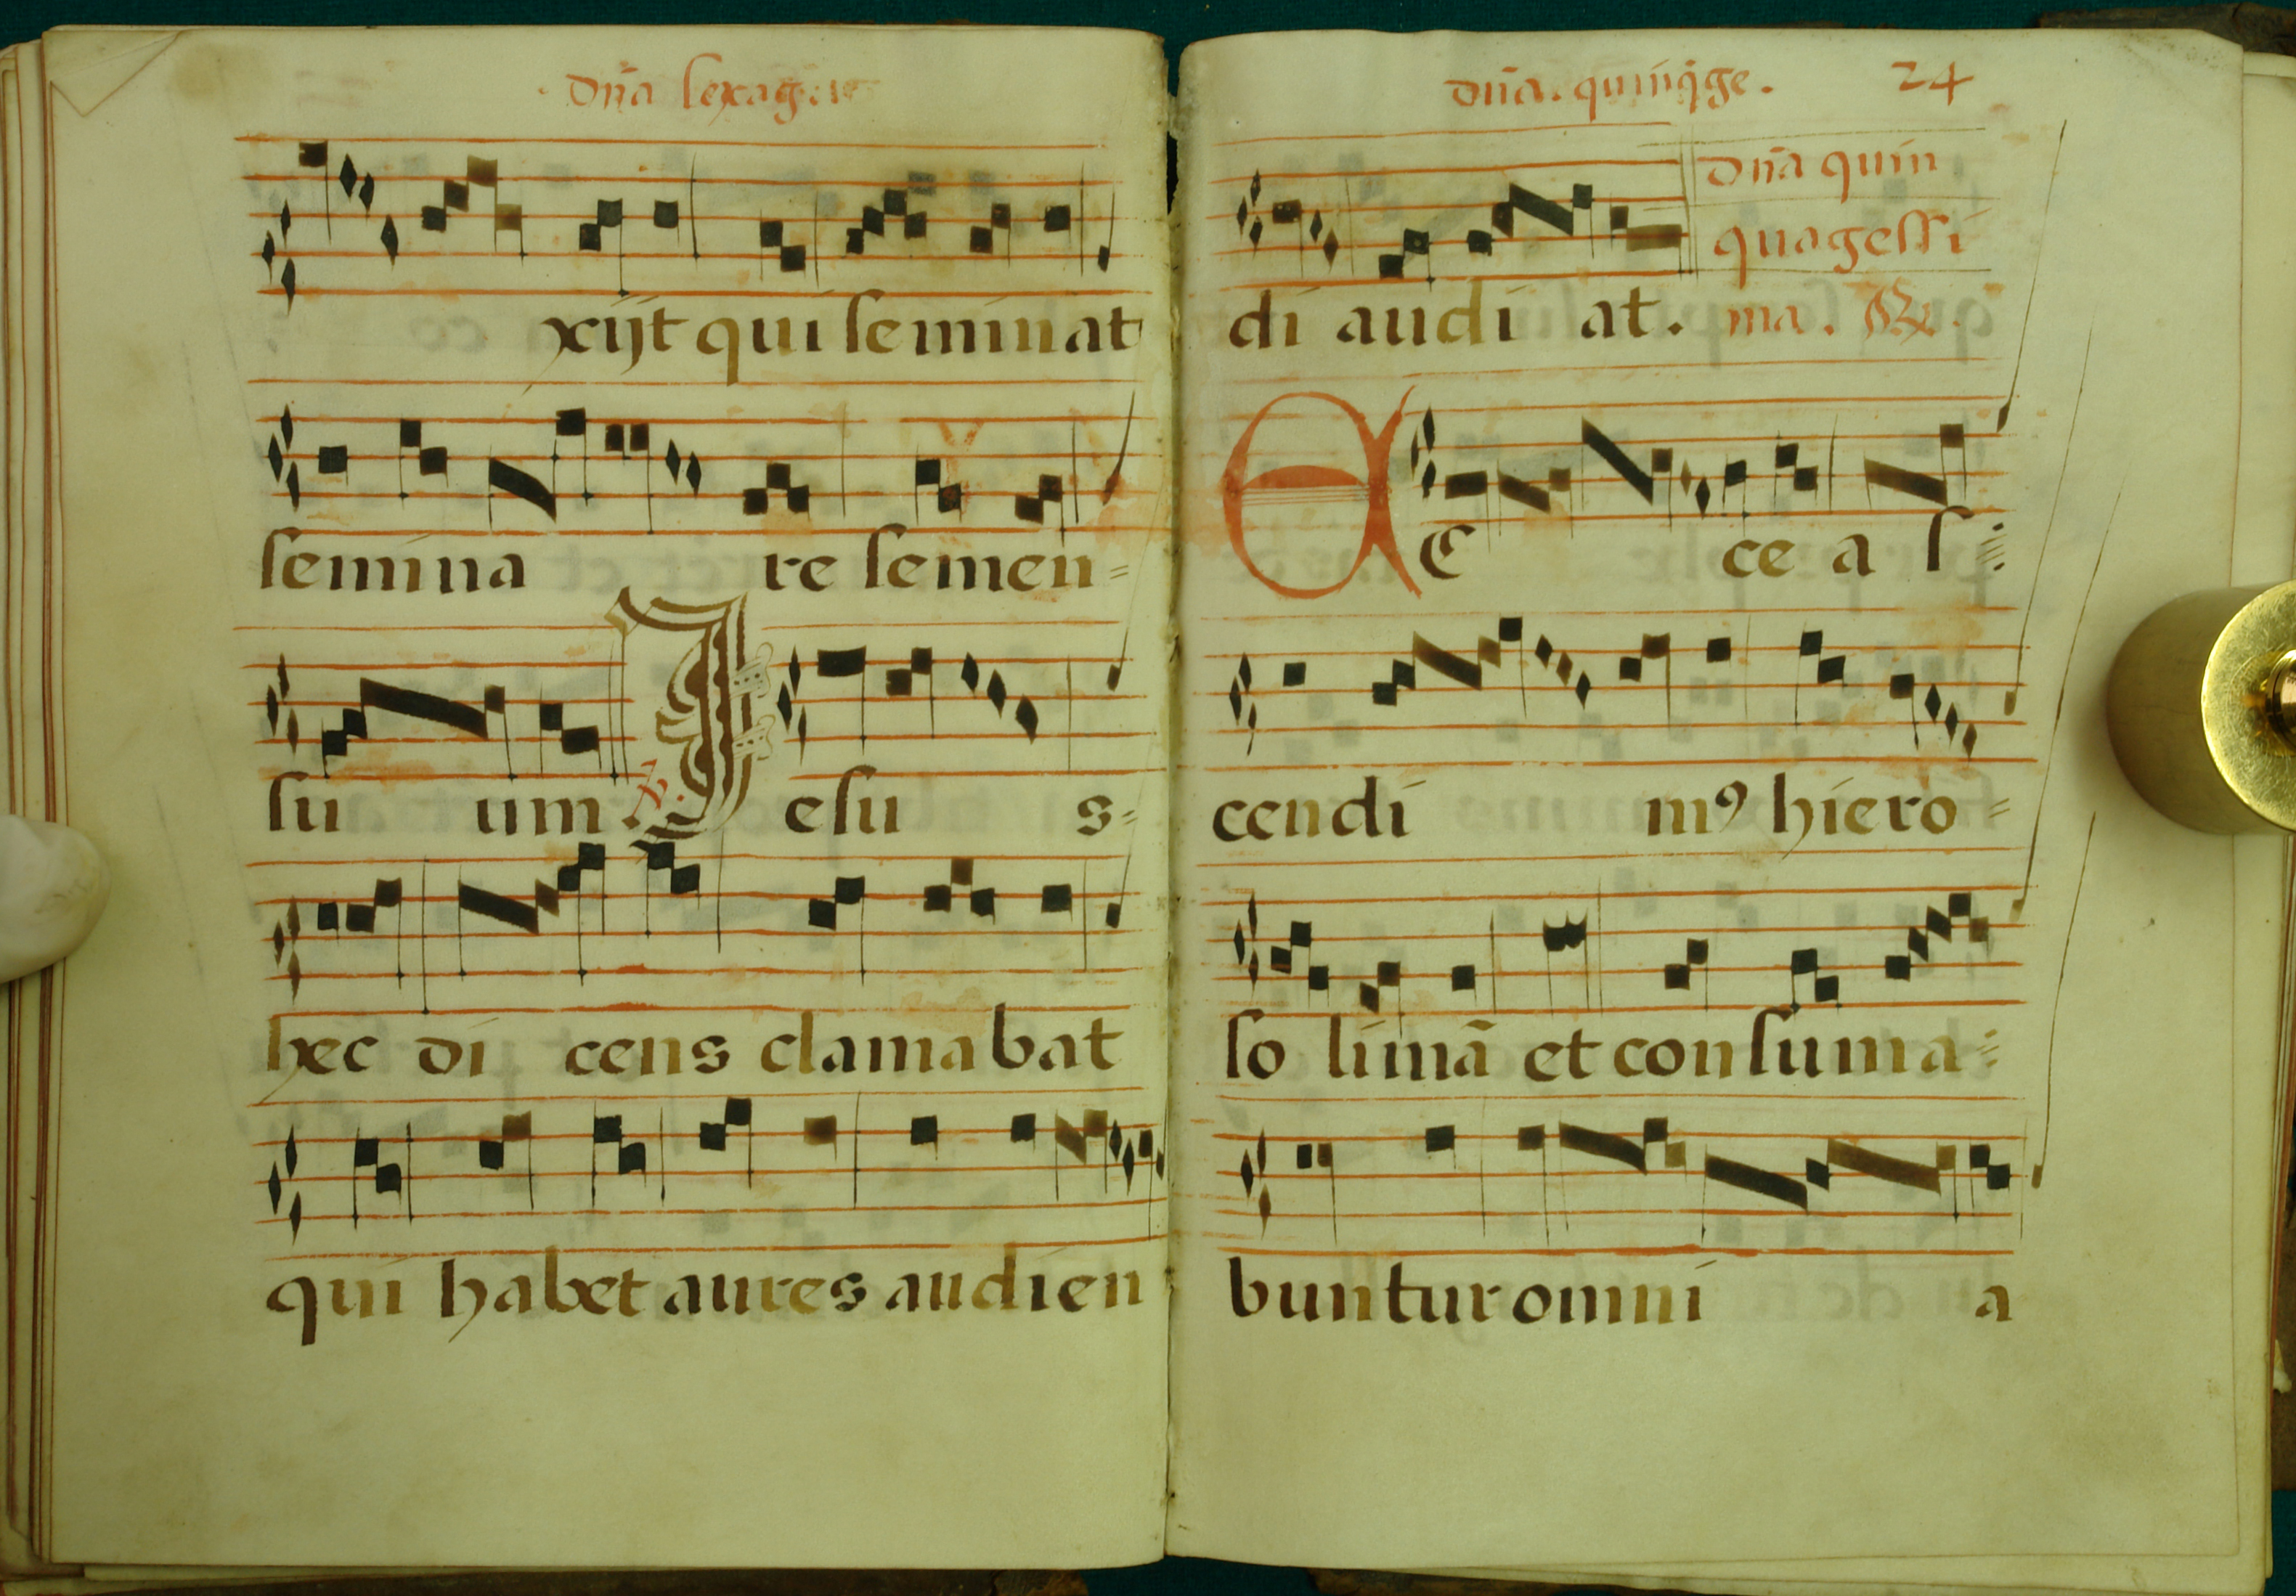 dña sexag
xijt qui seminat
semina re semen=
su um. ℣. Jesu s=
hec di cens clamabat
qui habet aures audien
dña. quinq̃ge. 24
di audi at. dña quin
quagessi
ma. ℟.
EC ce a s=
cendi mꝰ hiero=
so limã et consuma=
buntur omni a